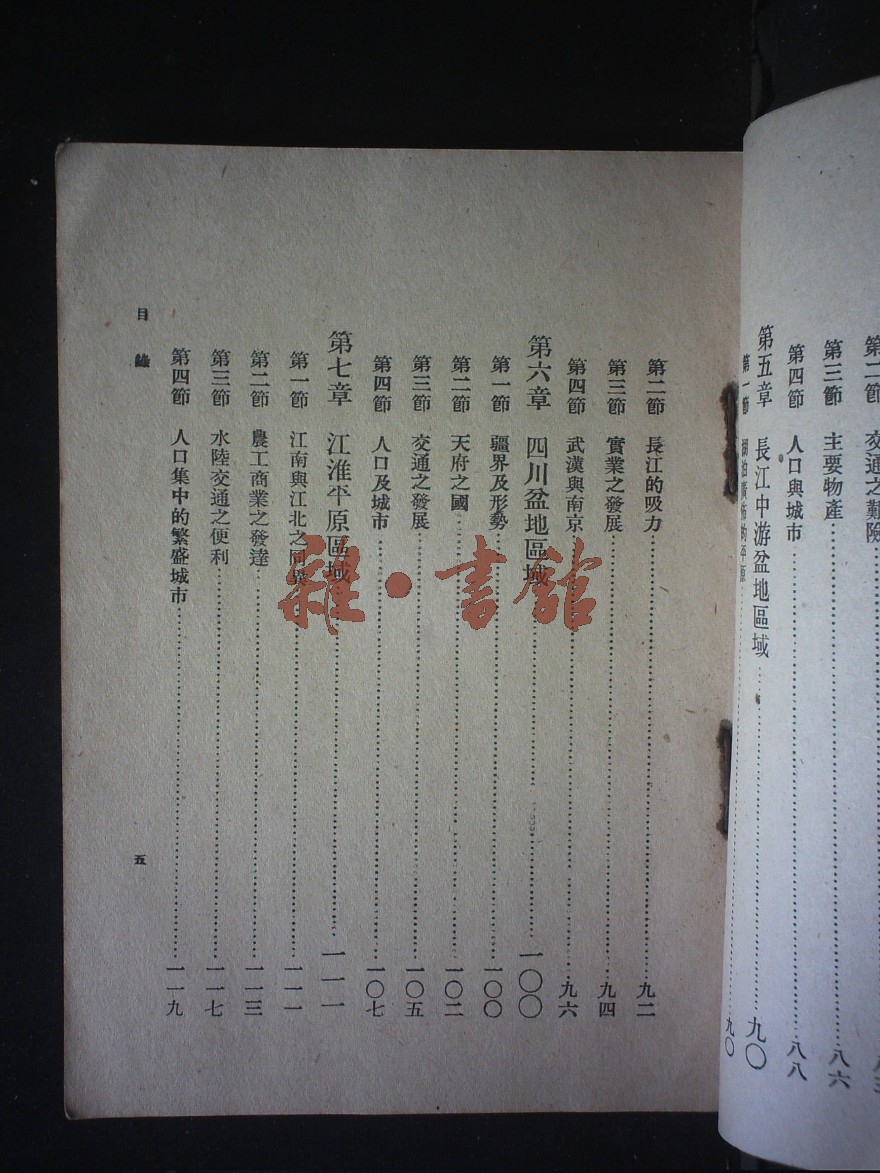 第二節 交通之艱險
第三節 主要物產……八六
第四節 人口與城市……八八
第五章 長江中游盆地區域……九〇
第一節 湖泊廣佈的平原……九〇
第二節 長江的吸力……九二
第三節 實業之發展……九四
第四節 武漢與南京……九六
第六章 四川盆地區域……一〇〇
第一節 疆界及形勢……一〇〇
第二節 天府之國……一〇二
第三節 交通之發展……一〇五
第四節 人口及城市……一〇七
第七章 江淮平原區域……一一一
第一節 江南與江北之同異……一一一
第二節 農工商業之發達……一一三
第三節 水陸交通之便利……一一七
第四節 人口集中的繁盛城市……一一九
目錄
五
雜·書館